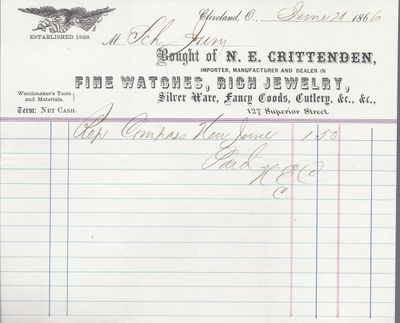 Cleveland, O., June 21 1866
ESTABLISHED 1826.
M Sch Juny
Bought of N. E. CRITTENDEN,
IMPORTER, MANUFACTURER AND DEALER IN
FINE WATCHES, RICH JEWELRY,
Watchmaker's Tools and Materials.
Silver Ware, Fancy Goods, Cutlery, &c., &c.,
Term: NET CASH.
127 Superior Street.
Rep Compass New 1.50
Paid
N E C